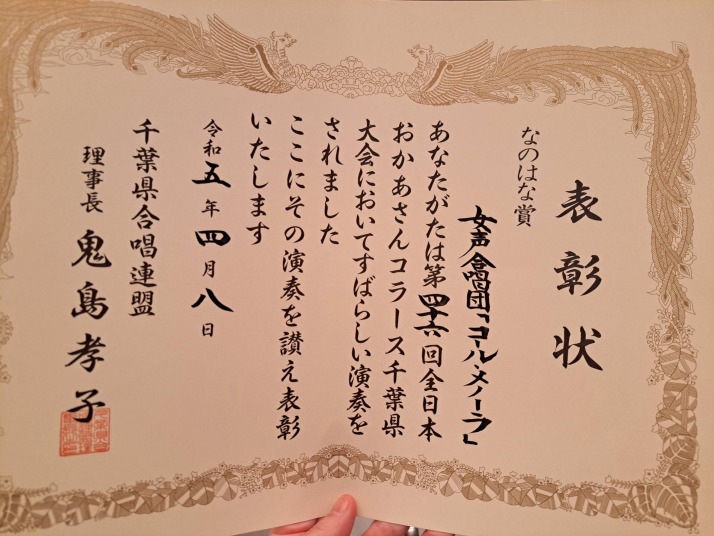 表彰状
なのはな賞
女声合唱団「コール・メノーラ」
あなたがたは第四十六回全日本
おかあさんコーラース千葉県
大会においてすばらしい演奏を
されました
ここにその演奏を讃え表彰
いたします
令和五年四月八日
千葉県合唱連盟
理事長 鬼島孝子